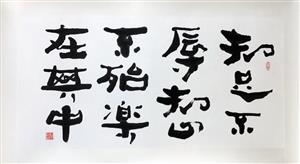 知足不
辱知止
不殆樂
在其中